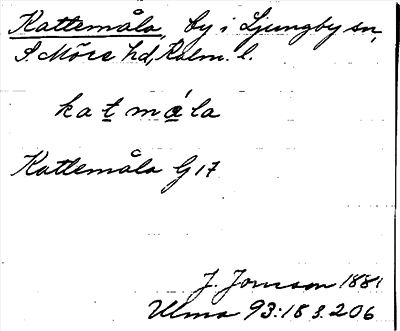 Kattemåla, by i Ljungby sn,
S. Möre hd, Kalm. l.
katmåla
Kattemåla G 17
J. Jonsson 1881
Ulma 93:18 s. 206